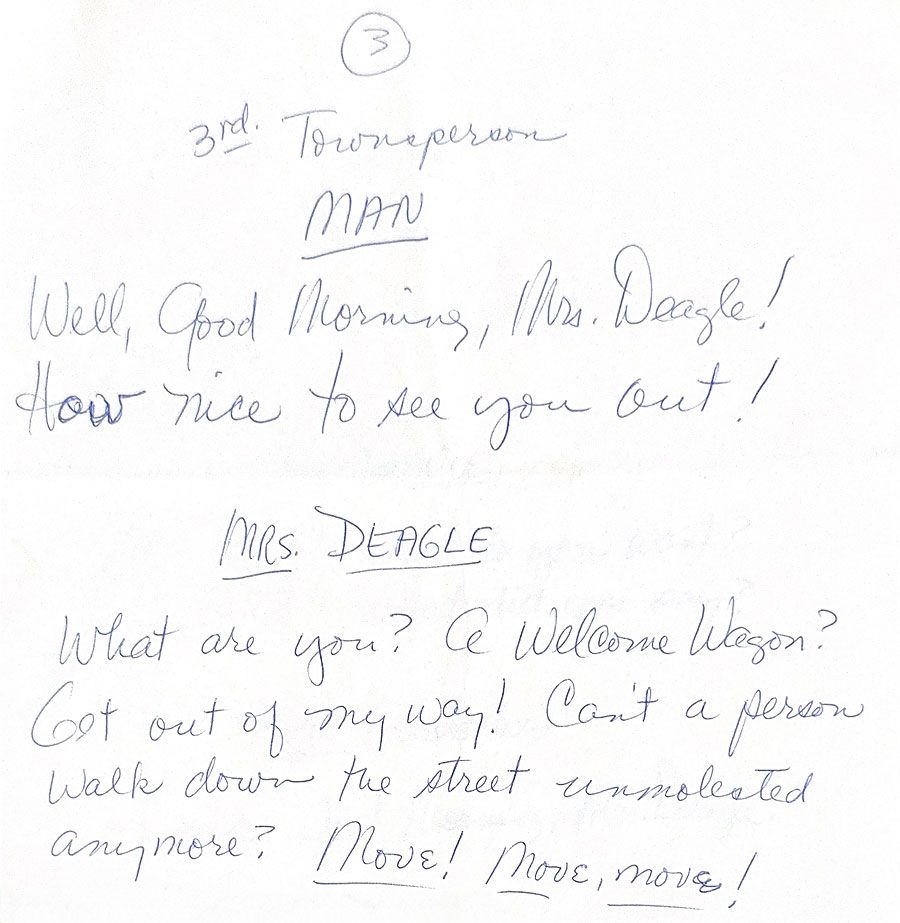 3
3rd. Townsperson
MAN
Well, Good Morning, Mrs. Deagle!
How nice to see you out!
MRS. DEAGLE
What are you? A Welcome Wagon?
Get out of my way! Can't a person
walk down the street unmolested
anymore? Move! Move, move!